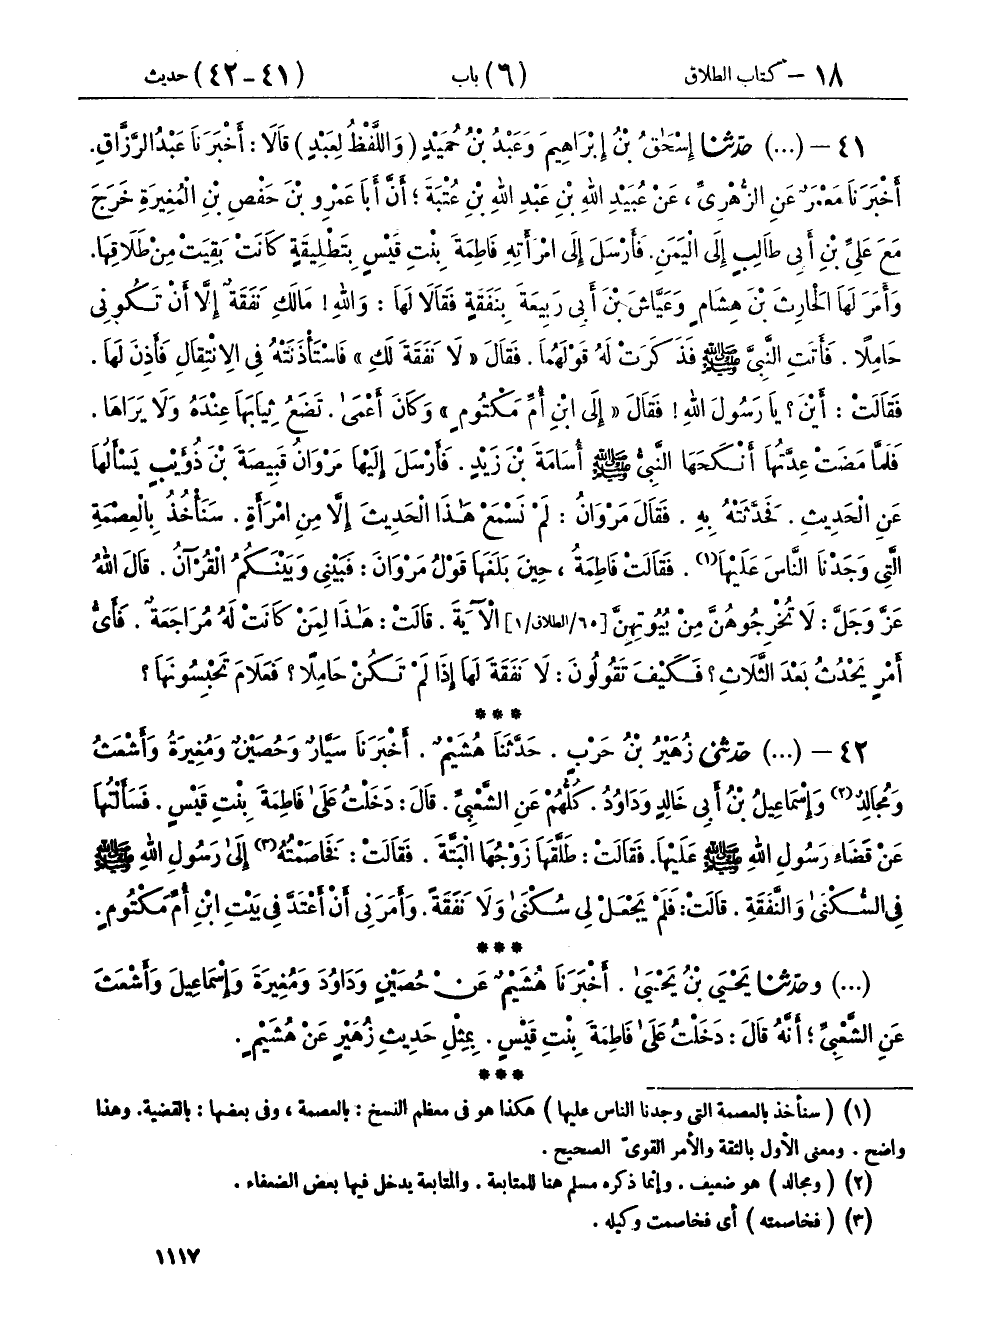 ١٨ – كتاب الطلاق (٦) باب (٤١-٤٢) حديث
٤١ – (...) حَدَّثَنَا إِسْحَٰقُ بْنُ إِبْرَاهِيمَ وَعَبْدُ بْنُ حُمَيْدٍ (وَاللَّفْظُ لِعَبْدٍ) قَالَا : أَخْبَرَنَا عَبْدُ الرَّزَّاقِ.
أَخْبَرَنَا مَعْمَرٌ عَنِ الزُّهْرِىِّ ، عَنْ عُبَيْدِ اللهِ بْنِ عَبْدِ اللهِ بْنِ عُتْبَةَ ؛ أَنَّ أَبَا عَمْرِو بْنَ حَفْصِ بْنِ الْمُغِيرَةِ خَرَجَ
مَعَ عَلِىِّ بْنِ أَبِى طَالِبٍ إِلَى الْيَمَنِ. فَأَرْسَلَ إِلَى امْرَأَتِهِ فَاطِمَةَ بِنْتِ قَيْسٍ بِتَطْلِيقَةٍ كَانَتْ بَقِيَتْ مِنْ طَلَاقِهَا.
وَأَمَرَ لَهَا الْحَارِثَ بْنَ هِشَامٍ وَعَيَّاشَ بْنَ أَبِى رَبِيعَةَ بِنَفَقَةٍ فَقَالَا لَهَا : وَاللهِ ! مَالَكِ نَفَقَةٌ إِلَّا أَنْ تَكُونِى
حَامِلًا . فَأَتَتِ النَّبِىَّ ﷺ فَذَكَرَتْ لَهُ قَوْلَهُمَا . فَقَالَ « لَا نَفَقَةَ لَكِ » فَاسْتَأْذَنَتْهُ فِى الِانْتِقَالِ فَأَذِنَ لَهَا .
فَقَالَتْ : أَيْنَ ؟ يَا رَسُولَ اللهِ ! فَقَالَ « إِلَى ابْنِ أُمِّ مَكْتُومٍ » وَكَانَ أَعْمَىٰ . تَضَعُ ثِيَابَهَا عِنْدَهُ وَلَا يَرَاهَا .
فَلَمَّا مَضَتْ عِدَّتُهَا أَنْكَحَهَا النَّبِىُّ ﷺ أُسَامَةَ بْنَ زَيْدٍ . فَأَرْسَلَ إِلَيْهَا مَرْوَانُ قَبِيصَةَ بْنَ ذُؤَيْبٍ يَسْأَلُهَا
عَنِ الْحَدِيثِ . فَحَدَّثَتْهُ بِهِ . فَقَالَ مَرْوَانُ : لَمْ نَسْمَعْ هَٰذَا الْحَدِيثَ إِلَّا مِنِ امْرَأَةٍ . سَنَأْخُذُ بِالْعِصْمَةِ
الَّتِى وَجَدْنَا النَّاسَ عَلَيْهَا(١) . فَقَالَتْ فَاطِمَةُ ، حِينَ بَلَغَهَا قَوْلُ مَرْوَانَ : فَبَيْنِى وَبَيْنَكُمُ الْقُرْآنُ . قَالَ اللهُ
عَزَّ وَجَلَّ : لَا تُخْرِجُوهُنَّ مِنْ بُيُوتِهِنَّ [٦٥/الطلاق/١] الْآيَةَ . قَالَتْ : هَٰذَا لِمَنْ كَانَتْ لَهُ مُرَاجَعَةٌ . فَأَىُّ
أَمْرٍ يَحْدُثُ بَعْدَ الثَّلَاثِ ؟ فَكَيْفَ تَقُولُونَ : لَا نَفَقَةَ لَهَا إِذَا لَمْ تَكُنْ حَامِلًا ؟ فَعَلَامَ تَحْبِسُونَهَا ؟
***
٤٢ – (...) حَدَّثَنِى زُهَيْرُ بْنُ حَرْبٍ . حَدَّثَنَا هُشَيْمٌ . أَخْبَرَنَا سَيَّارٌ وَحُصَيْنٌ وَمُغِيرَةُ وَأَشْعَثُ
وَمُجَالِدٌ(٢) وَإِسْمَاعِيلُ بْنُ أَبِى خَالِدٍ وَدَاوُدُ . كُلُّهُمْ عَنِ الشَّعْبِىِّ . قَالَ : دَخَلْتُ عَلَىٰ فَاطِمَةَ بِنْتِ قَيْسٍ . فَسَأَلْتُهَا
عَنْ قَضَاءِ رَسُولِ اللهِ ﷺ عَلَيْهَا. فَقَالَتْ : طَلَّقَهَا زَوْجُهَا الْبَتَّةَ . فَقَالَتْ : فَخَاصَمْتُهُ(٣) إِلَىٰ رَسُولِ اللهِ ﷺ
فِى السُّكْنَىٰ وَالنَّفَقَةِ . قَالَتْ: فَلَمْ يَجْعَلْ لِى سُكْنَىٰ وَلَا نَفَقَةً. وَأَمَرَنِى أَنْ أَعْتَدَّ فِى بَيْتِ ابْنِ أُمِّ مَكْتُومٍ.
***
(...) وحَدَّثَنَا يَحْيَى بْنُ يَحْيَىٰ . أَخْبَرَنَا هُشَيْمٌ عَنْ حُصَيْنٍ وَدَاوُدَ وَمُغِيرَةَ وَإِسْمَاعِيلَ وَأَشْعَثَ
عَنِ الشَّعْبِىِّ ؛ أَنَّهُ قَالَ : دَخَلْتُ عَلَىٰ فَاطِمَةَ بِنْتِ قَيْسٍ . بِمِثْلِ حَدِيثِ زُهَيْرٍ عَنْ هُشَيْمٍ .
***
(١) ( سنأخذ بالعصمة التى وجدنا الناس عليها ) هكذا هو فى معظم النسخ : بالعصمة ، وفى بعضها : بالقضية. وهذا
واضح . ومعنى الأول بالثقة والأمر القوىّ الصحيح .
(٢) ( ومجالد ) هو ضعيف . وإنما ذكره مسلم هنا للمتابعة . والمتابعة يدخل فيها بعض الضعفاء .
(٣) ( فخاصمته ) أى فخاصمت وكيله .
١١١٧